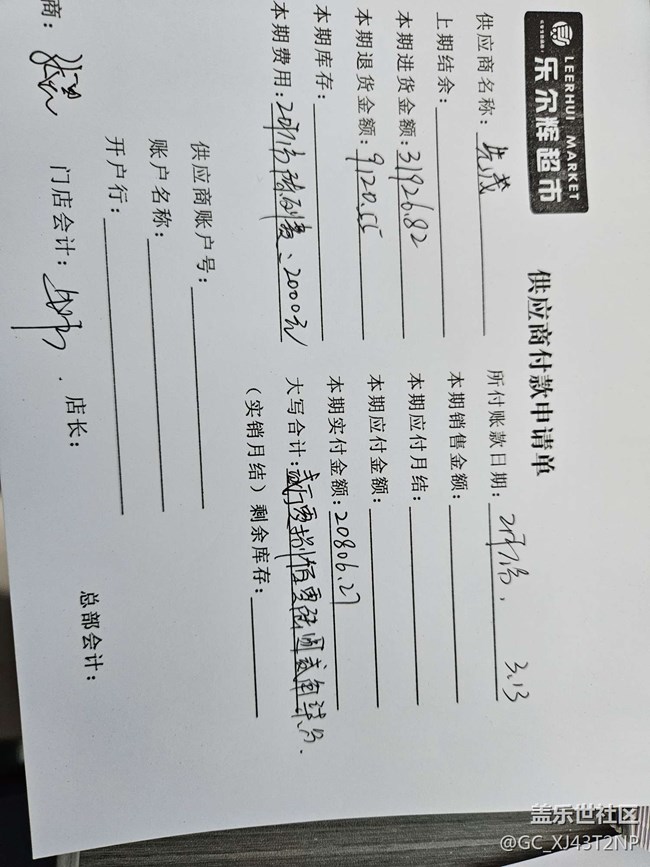 LEERHUI MARKET
乐尔辉超市
供应商付款申请单
供应商名称：先茂
所付账款日期： 3.13
上期结余：
本期销售金额：
本期进货金额：31926.82
本期应付月结：
本期退货金额：9120.55
本期应付金额：
本期库存：
本期实付金额：20806.27
本期费用： 2000元
大写合计：贰万零捌佰零陆圆贰角柒分.
（实销月结）剩余库存：
供应商账户号：
账户名称：
开户行：
商：
门店会计：
店长：
总部会计：
盖乐世社区
@GC_XJ43T2NP